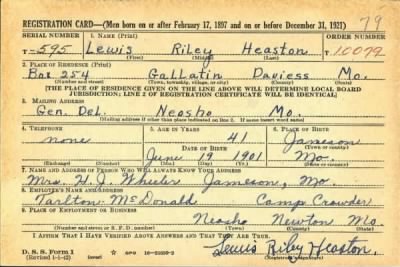 79
REGISTRATION CARD—(Men born on or after February 17, 1897 and on or before December 31, 1921)
SERIAL NUMBER 1. NAME (Print) ORDER NUMBER
T-595 Lewis Riley Heaston 10079
(First) (Middle) (Last)
2. PLACE OF RESIDENCE (Print)
Box 254 Gallatin Daviess Mo.
(Number and street) (Town, township, village, or city) (County) (State)
[THE PLACE OF RESIDENCE GIVEN ON THE LINE ABOVE WILL DETERMINE LOCAL BOARD
JURISDICTION; LINE 2 OF REGISTRATION CERTIFICATE WILL BE IDENTICAL]
3. MAILING ADDRESS
Gen. Del. Neosho Mo.
[Mailing address if other than place indicated on line 2. If same insert word same]
4. TELEPHONE 5. AGE IN YEARS 6. PLACE OF BIRTH
none 41 Jameson
DATE OF BIRTH (Town or county)
June 19 1901 Mo.
(Exchange) (Number) (Mo.) (Day) (Yr.) (State or country)
7. NAME AND ADDRESS OF PERSON WHO WILL ALWAYS KNOW YOUR ADDRESS
Mrs. H. J. Wheeler Jameson, Mo.
8. EMPLOYER'S NAME AND ADDRESS
Tarlton-McDonald Camp Crowder
9. PLACE OF EMPLOYMENT OR BUSINESS
Neosho Newton Mo.
(Number and street or R. F. D. number) (Town) (County) (State)
I AFFIRM THAT I HAVE VERIFIED ABOVE ANSWERS AND THAT THEY ARE TRUE.
D. S. S. Form 1
(Revised 1-1-42) (over) GPO Lewis Riley Heaston.
(Registrant's signature)